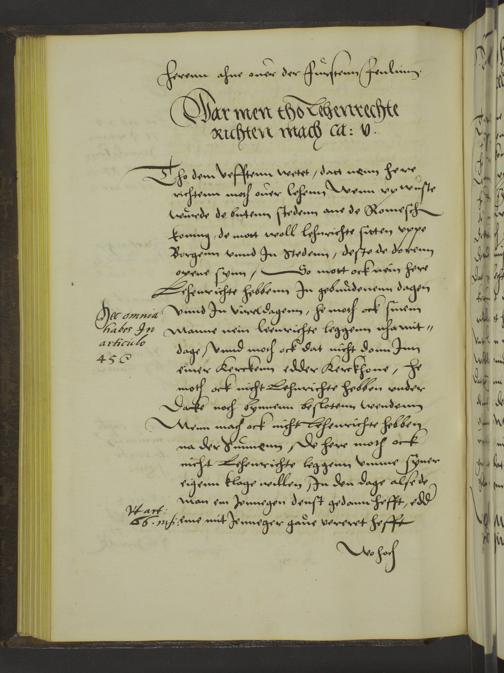 herenn ahne ouer der Fürstenn
War men tho Lehenrechte
richten mach Ca: V.
Tho dem Vefftenn wetet, datt nenn here
richtenn moth ouer lehenn, Wenn vp wüste
wurde de butenn stedenn ane de Romesche
koning, de mott woll lehnrichte sitten vppe
Borgenn vnnd In Stedenn, deste de dorenn
opene synn, So mott ock nein here
Lehenrichte hebbenn In gebundenenn dagen
vnnd In vireldagenn, he moth ock sinem
Manne nein leenrichte leggenn nhamit=
dage, vnnd moth ock dat nicht donn Inn
einer Kerckenn edder Kerckhoue, he
moth ock nicht Lehnrichte hebben vnder
Dacke noch bynnenn beslotenn wendenn
Menn mach ock nicht Lehenrichte hebben
na der Sunnenn, De here moth ock
nicht Lehenrichte leggenn vmme syner
eigenn klage willen, In den dage alse de
man en Jennegen denst gedann hefft, edder
ene mit Jenneger gaue vereret hefft
Hec omnia
habes In
articulo
456
Wo hoch